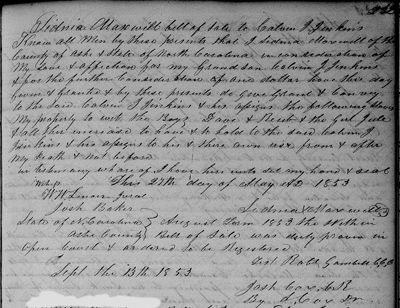 Sidnia Maxwell bill of sale to Calvin J Jenkins
Know all Men by these presents that I Sidnia Maxwell of the
County of Ashe & State of North Carolina in consideration of
My love & affection for my Grandson Calvin J Jenkins
& for the further Consideration of one dollar have this day
given & granted & by these presents do give Grant & Convey
to the said Calvin J Jenkins & his assigns the following
My property to wit the Boys Dave & & the Girl Jule
& all their increase to have & to hold to the said Calvin J
Jenkins & his assigns to his & their own use from & after
My death & not before
In testimony whereof I have hereunto set my hand & seal
This 27th day of May AD 1853
Josh Baker
Sidnia Maxwell
State of N. Carolina August Term 1853 the within
Ashe County Bill of Sale was duly proven in
Open Court & ordered to be Registered
Test Gambill CCC
Sept the 13th 1853
Josh Cox
By Cox